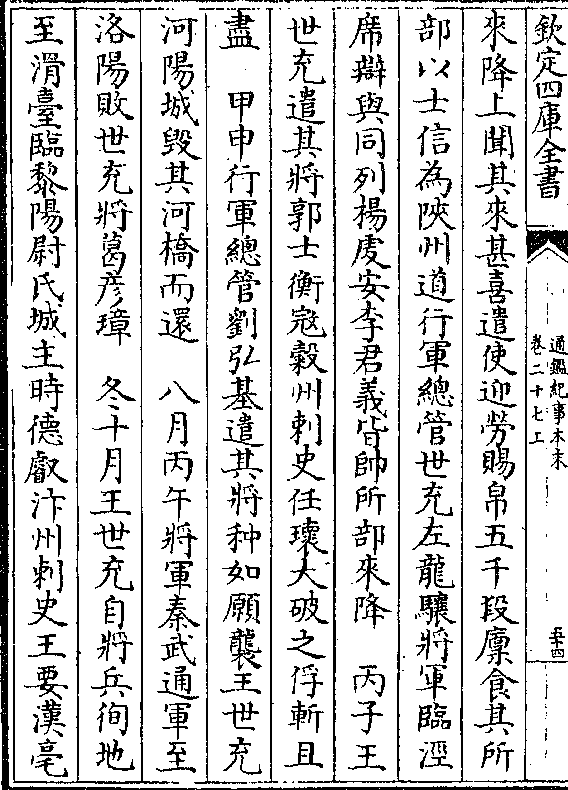 欽定四庫全書
通鑑紀事本末
卷二十七上
五十四
來降上聞其來甚喜遣使迎勞賜帛五千段廩食其所
部以士信為陜州道行軍總管世充左龍驤將軍臨涇
席辯與同列楊虔安李君義皆帥所部來降　丙子王
世充遣其將郭士衡寇穀州刺史任瓌大破之俘斬且
盡　甲申行軍總管劉弘基遣其將种如願襲王世充
河陽城毀其河橋而還　八月丙午將軍秦武通軍至
洛陽敗世充將葛彥璋　冬十月王世充自將兵徇地
至滑臺臨黎陽尉氏城主時德叡汴州刺史王要漢亳